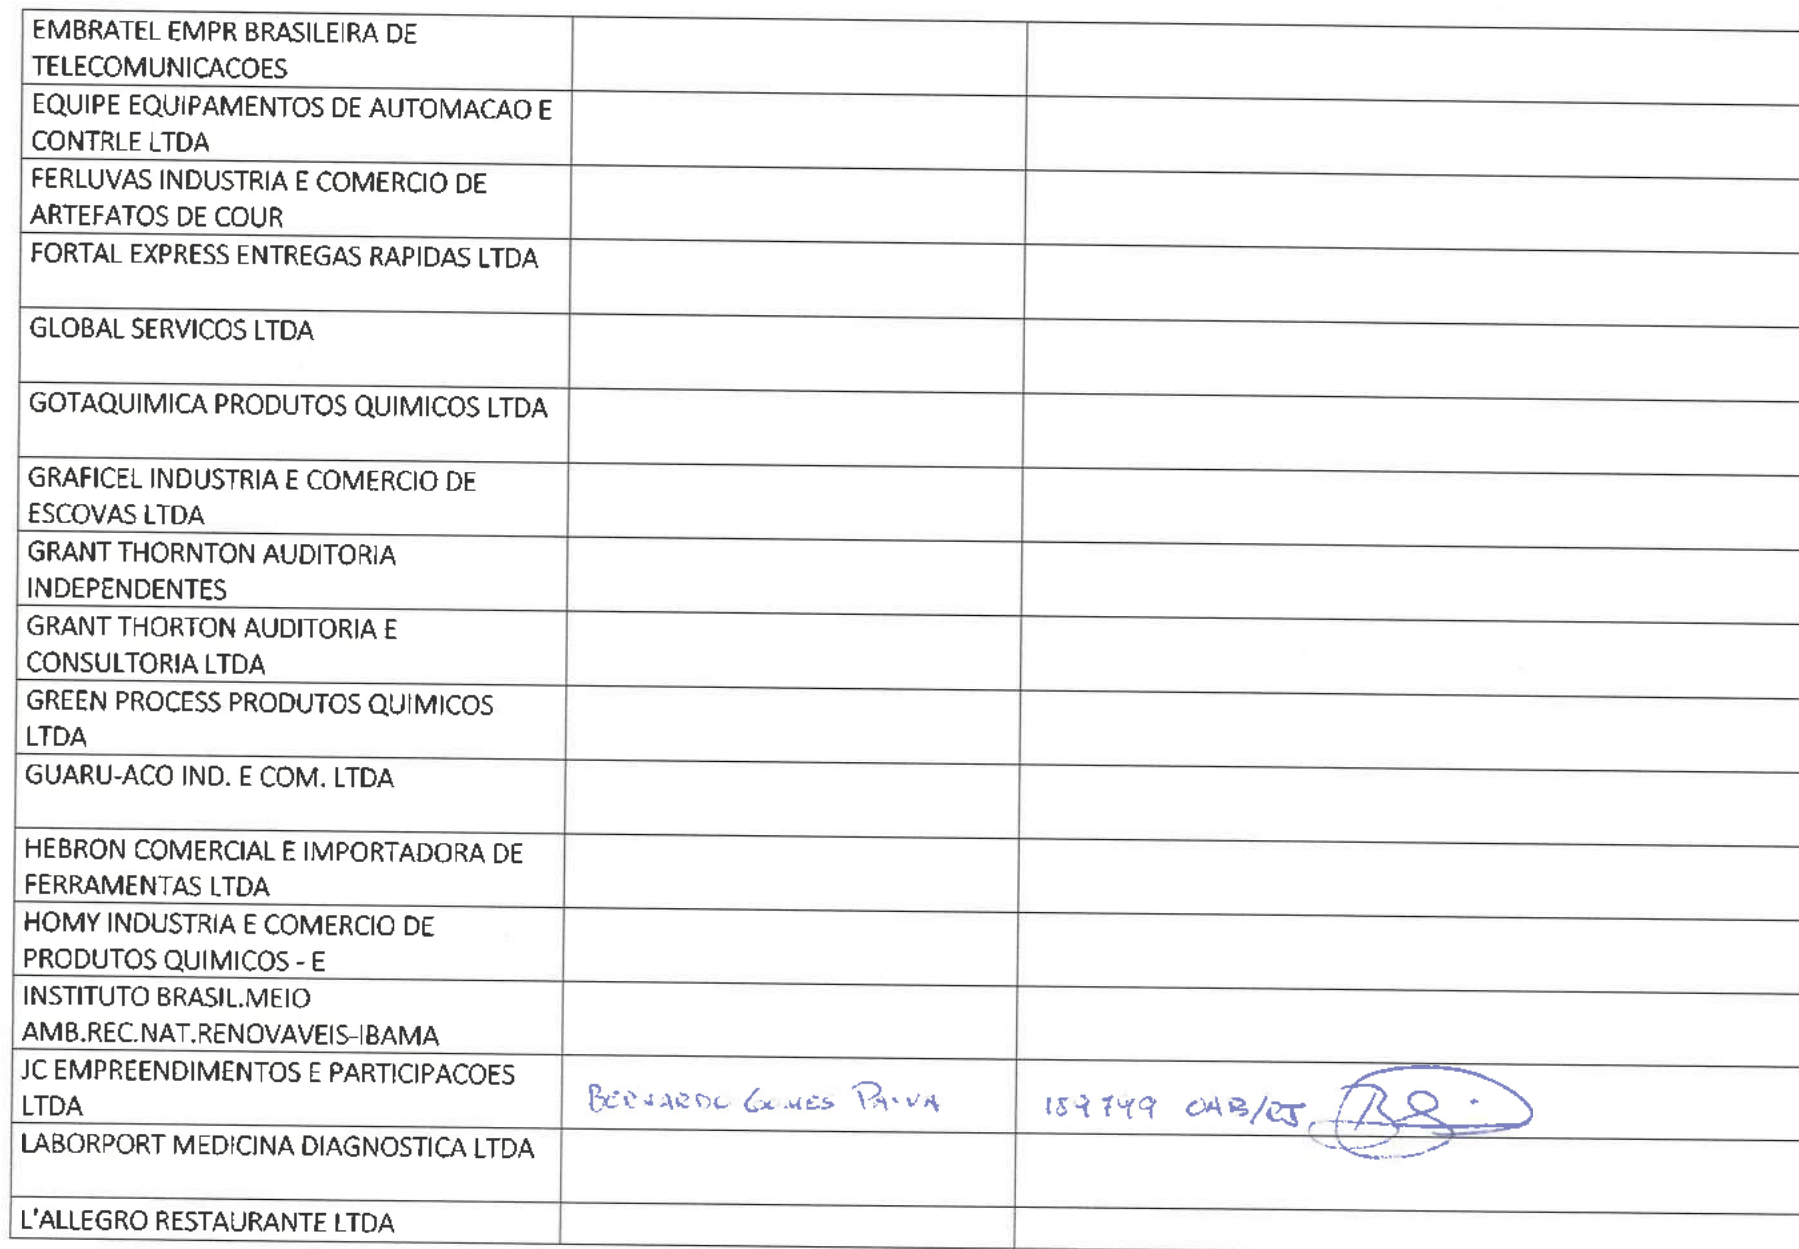 EMBRATEL EMPR BRASILEIRA DE
TELECOMUNICACOES
EQUIPE EQUIPAMENTOS DE AUTOMACAO E
CONTRLE LTDA
FERLUVAS INDUSTRIA E COMERCIO DE
ARTEFATOS DE COUR
FORTAL EXPRESS ENTREGAS RAPIDAS LTDA
GLOBAL SERVICOS LTDA
GOTAQUIMICA PRODUTOS QUIMICOS LTDA
GRAFICEL INDUSTRIA E COMERCIO DE
ESCOVAS LTDA
GRANT THORNTON AUDITORIA
INDEPENDENTES
GRANT THORTON AUDITORIA E
CONSULTORIA LTDA
GREEN PROCESS PRODUTOS QUIMICOS
LTDA
GUARU-ACO IND. E COM. LTDA
HEBRON COMERCIAL E IMPORTADORA DE
FERRAMENTAS LTDA
HOMY INDUSTRIA E COMERCIO DE
PRODUTOS QUIMICOS - E
INSTITUTO BRASIL.MEIO
AMB.REC.NAT.RENOVAVEIS-IBAMA
JC EMPREENDIMENTOS E PARTICIPACOES
LTDA
BERNARDO GOMES PAIVA
189799 OAB/RJ
LABORPORT MEDICINA DIAGNOSTICA LTDA
L'ALLEGRO RESTAURANTE LTDA